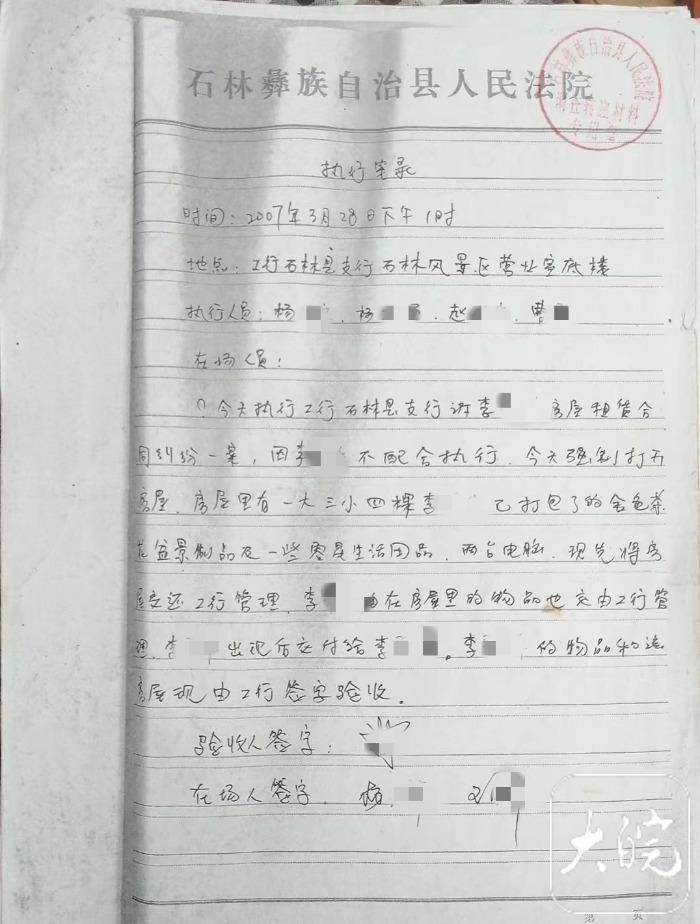 石林彝族自治县人民法院
石林彝族自治县人民法院
专用章
执行笔录
时间：2007年3月28日下午1时
地点：工行石林县支行石林风景区营业室底楼
执行人员：杨 、杨 、赵 、曹
在场人员：
？今天执行工行石林县支行诉李 房屋租赁合
同纠纷一案，因李 不配合执行，今天强制打开
房屋，房屋里有一大三小四棵李 已打包了的金色茶
花盆景制品及一些零星生活用品，两台电脑，现先将房
屋交还工行管理，李 在房屋里的物品也交由工行管
理，李 出现后交付给李 。李 的物品和
房屋现由工行签字验收。
验收人签字：
在场人签字． 杨
大皖
第 页